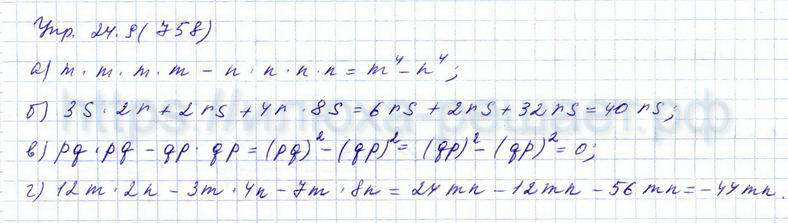 Упр. 24.9(758)
а) m · m · m · m – n · n · n · n = m⁴ – n⁴;
б) 3s · 2r + 2rs + 4r · 8s = 6rs + 2rs + 32rs = 40 rs;
в) pq · pq – qp · qp = (pq)² – (qp)² = (qp)² – (qp)² = 0;
г) 12m · 2n – 3m · 4n – 7m · 8n = 24mn – 12mn – 56mn = –44mn.